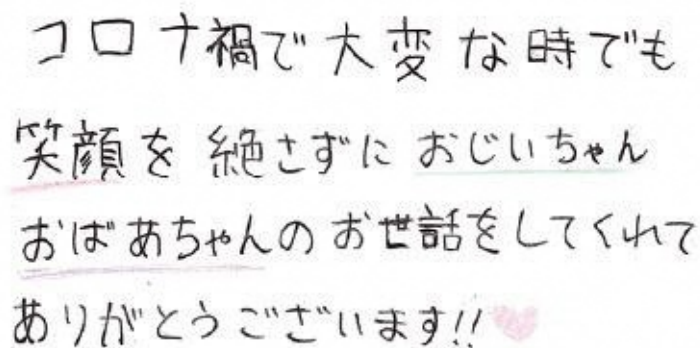 コロナ禍で大変な時でも
笑顔を絶さずにおじいちゃん
おばあちゃんのお世話をしてくれて
ありがとうございます!!